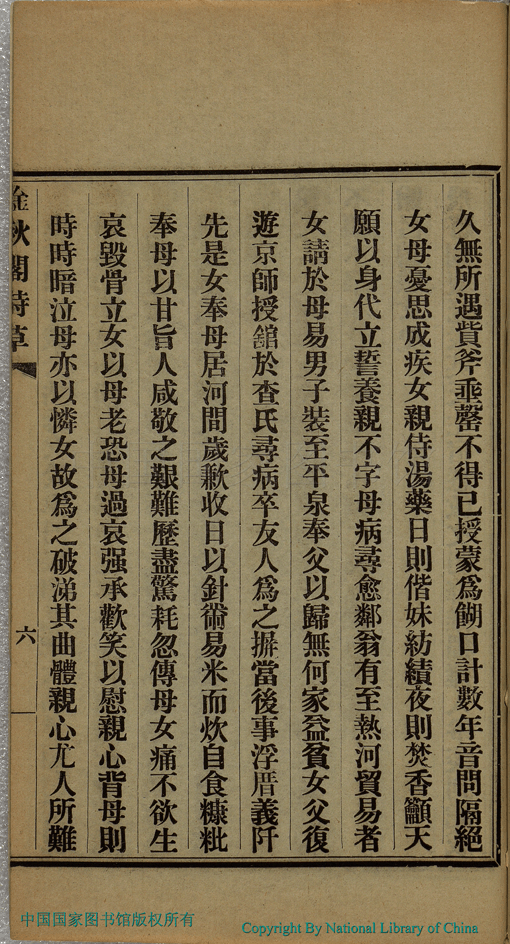 久無所遇貲斧乖罄不得已授蒙爲餬口計數年音問隔絕
女母憂思成疾女親侍湯藥日則偕妹紡績夜則焚香籲天
願以身代立誓養親不字母病尋愈鄰翁有至熱河貿易者
女請於母易男子裝至平泉奉父以歸無何家益貧女父復
遊京師授舘於查氏尋病卒友人爲之摒當後事浮厝義阡
先是女奉母居河間歲歉收日以針黹易米而炊自食糠粃
奉母以甘旨人咸敬之艱難歷盡驚耗忽傳母女痛不欲生
哀毀骨立女以母老恐母過哀强承歡笑以慰親心背母則
時時暗泣母亦以憐女故爲之破涕其曲體親心尤人所難
秋閣詩草
六
中国国家图书馆版权所有
Copyright By National Library of China